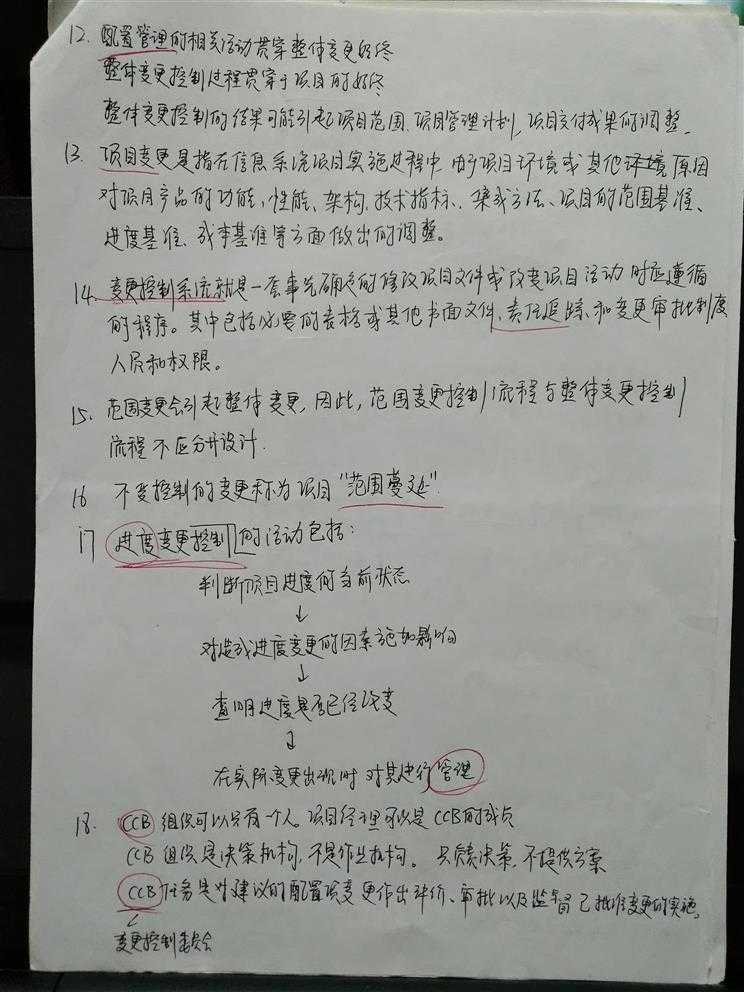 12. 配置管理的相关活动贯穿整体变更始终
整体变更控制过程贯穿于项目的始终
整体变更控制的结果可能引起项目范围、项目管理计划、项目交付成果的调整。
13. 项目变更是指在信息系统项目实施过程中,由于项目环境或其他环境原因
对项目产品的功能、性能、架构、技术指标、集成方法、项目的范围基准、
进度基准、成本基准等方面做出的调整。
14. 变更控制系统就是一套事先确定的修改项目文件或改变项目活动时应遵循
的程序。其中包括必要的表格或其他书面文件、责任追踪、和变更审批制度
人员和权限。
15. 范围变更会引起整体变更,因此,范围变更控制流程与整体变更控制
流程不应分开设计.
16 不受控制的变更称为项目“范围蔓延”.
17 进度变更控制的活动包括:
判断项目进度的当前状态
↓
对造成进度变更的因素施加影响
↓
查明进度是否已经改变
↓
在实际变更出现时对其进行管理
18. CCB 组织可以只有一个人。项目经理可以是CCB的成员
CCB 组织是决策机构,不是作业机构。只负责决策,不提供方案
CCB 任务是对建议的配置项变更作出评价、审批以及监督已批准变更的实施。
↓
变更控制委员会